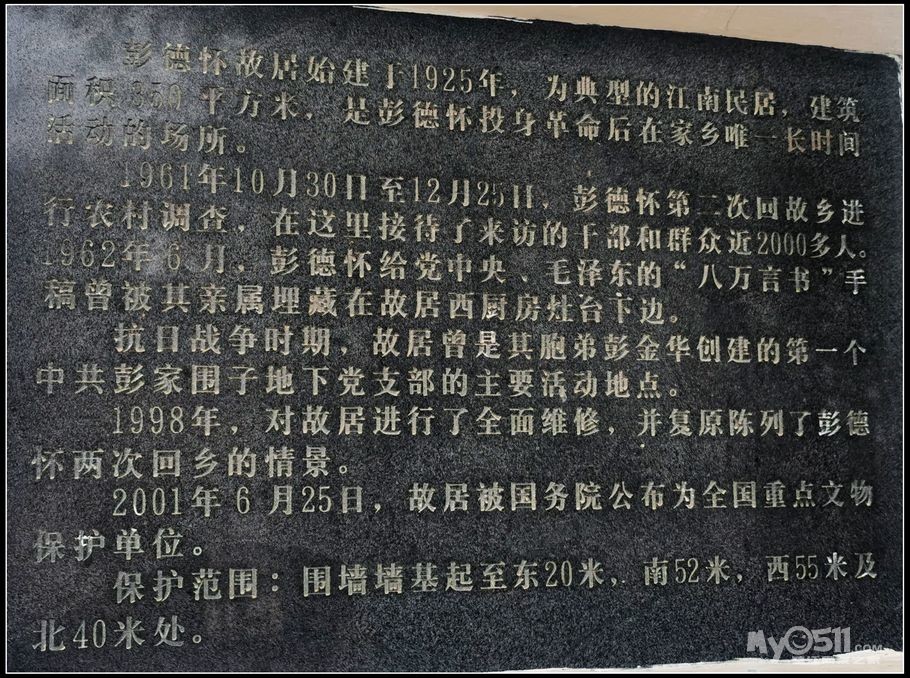 彭德怀故居始建于1925年，为典型的江南民居，建筑
面积350平方米，是彭德怀投身革命后在家乡唯一长时间
活动的场所。
1961年10月30日至12月25日，彭德怀第二次回故乡进
行农村调查，在这里接待了来访的干部和群众近2000多人。
1962年6月，彭德怀给党中央、毛泽东的“八万言书”手
稿曾被其亲属埋藏在故居西厨房灶台下边。
抗日战争时期，故居曾是其胞弟彭金华创建的第一个
中共彭家围子地下党支部的主要活动地点。
1998年，对故居进行了全面维修，并复原陈列了彭德
怀两次回乡的情景。
2001年6月25日，故居被国务院公布为全国重点文物
保护单位。
保护范围：围墙墙基起至东20米，南52米，西55米及
北40米处。
My0511.com